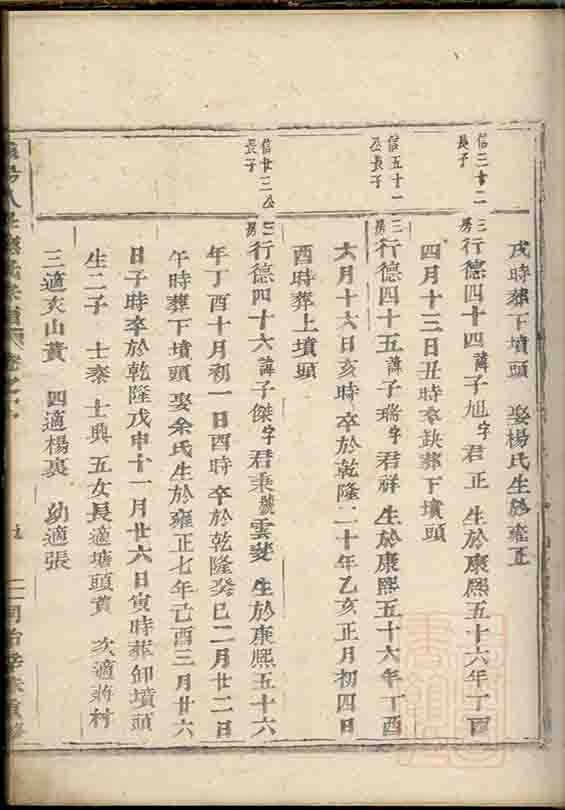 戌時葬下墳頭 娶楊氏生於雍正
信三廿二
長子
三房行德四十四諱子旭字君正 生於康熙五十六年丁酉
四月十三日丑時卒缺葬下墳頭
信五十一
公長子
三房行德四十五諱子瑞字君祥 生於康熙五十六年丁酉
六月十六日亥時 卒於乾隆二十年乙亥正月初四日
酉時葬上墳頭
信廿三公
長子
三房行德四十六諱子傑字君秉號雲 生於康熙五十六
年丁酉十月初一日酉時 卒於乾隆癸巳二月廿二日
午時葬下墳頭 娶余氏生於雍正七年己酉三月廿六
日子時卒於乾隆戊申十一月廿六日寅時葬卸墳頭
生二子 士泰 士興 五女長適塘頭黃 次適蔣村
三適夾山黃 四適楊裏 幼適張
同治辛未重修